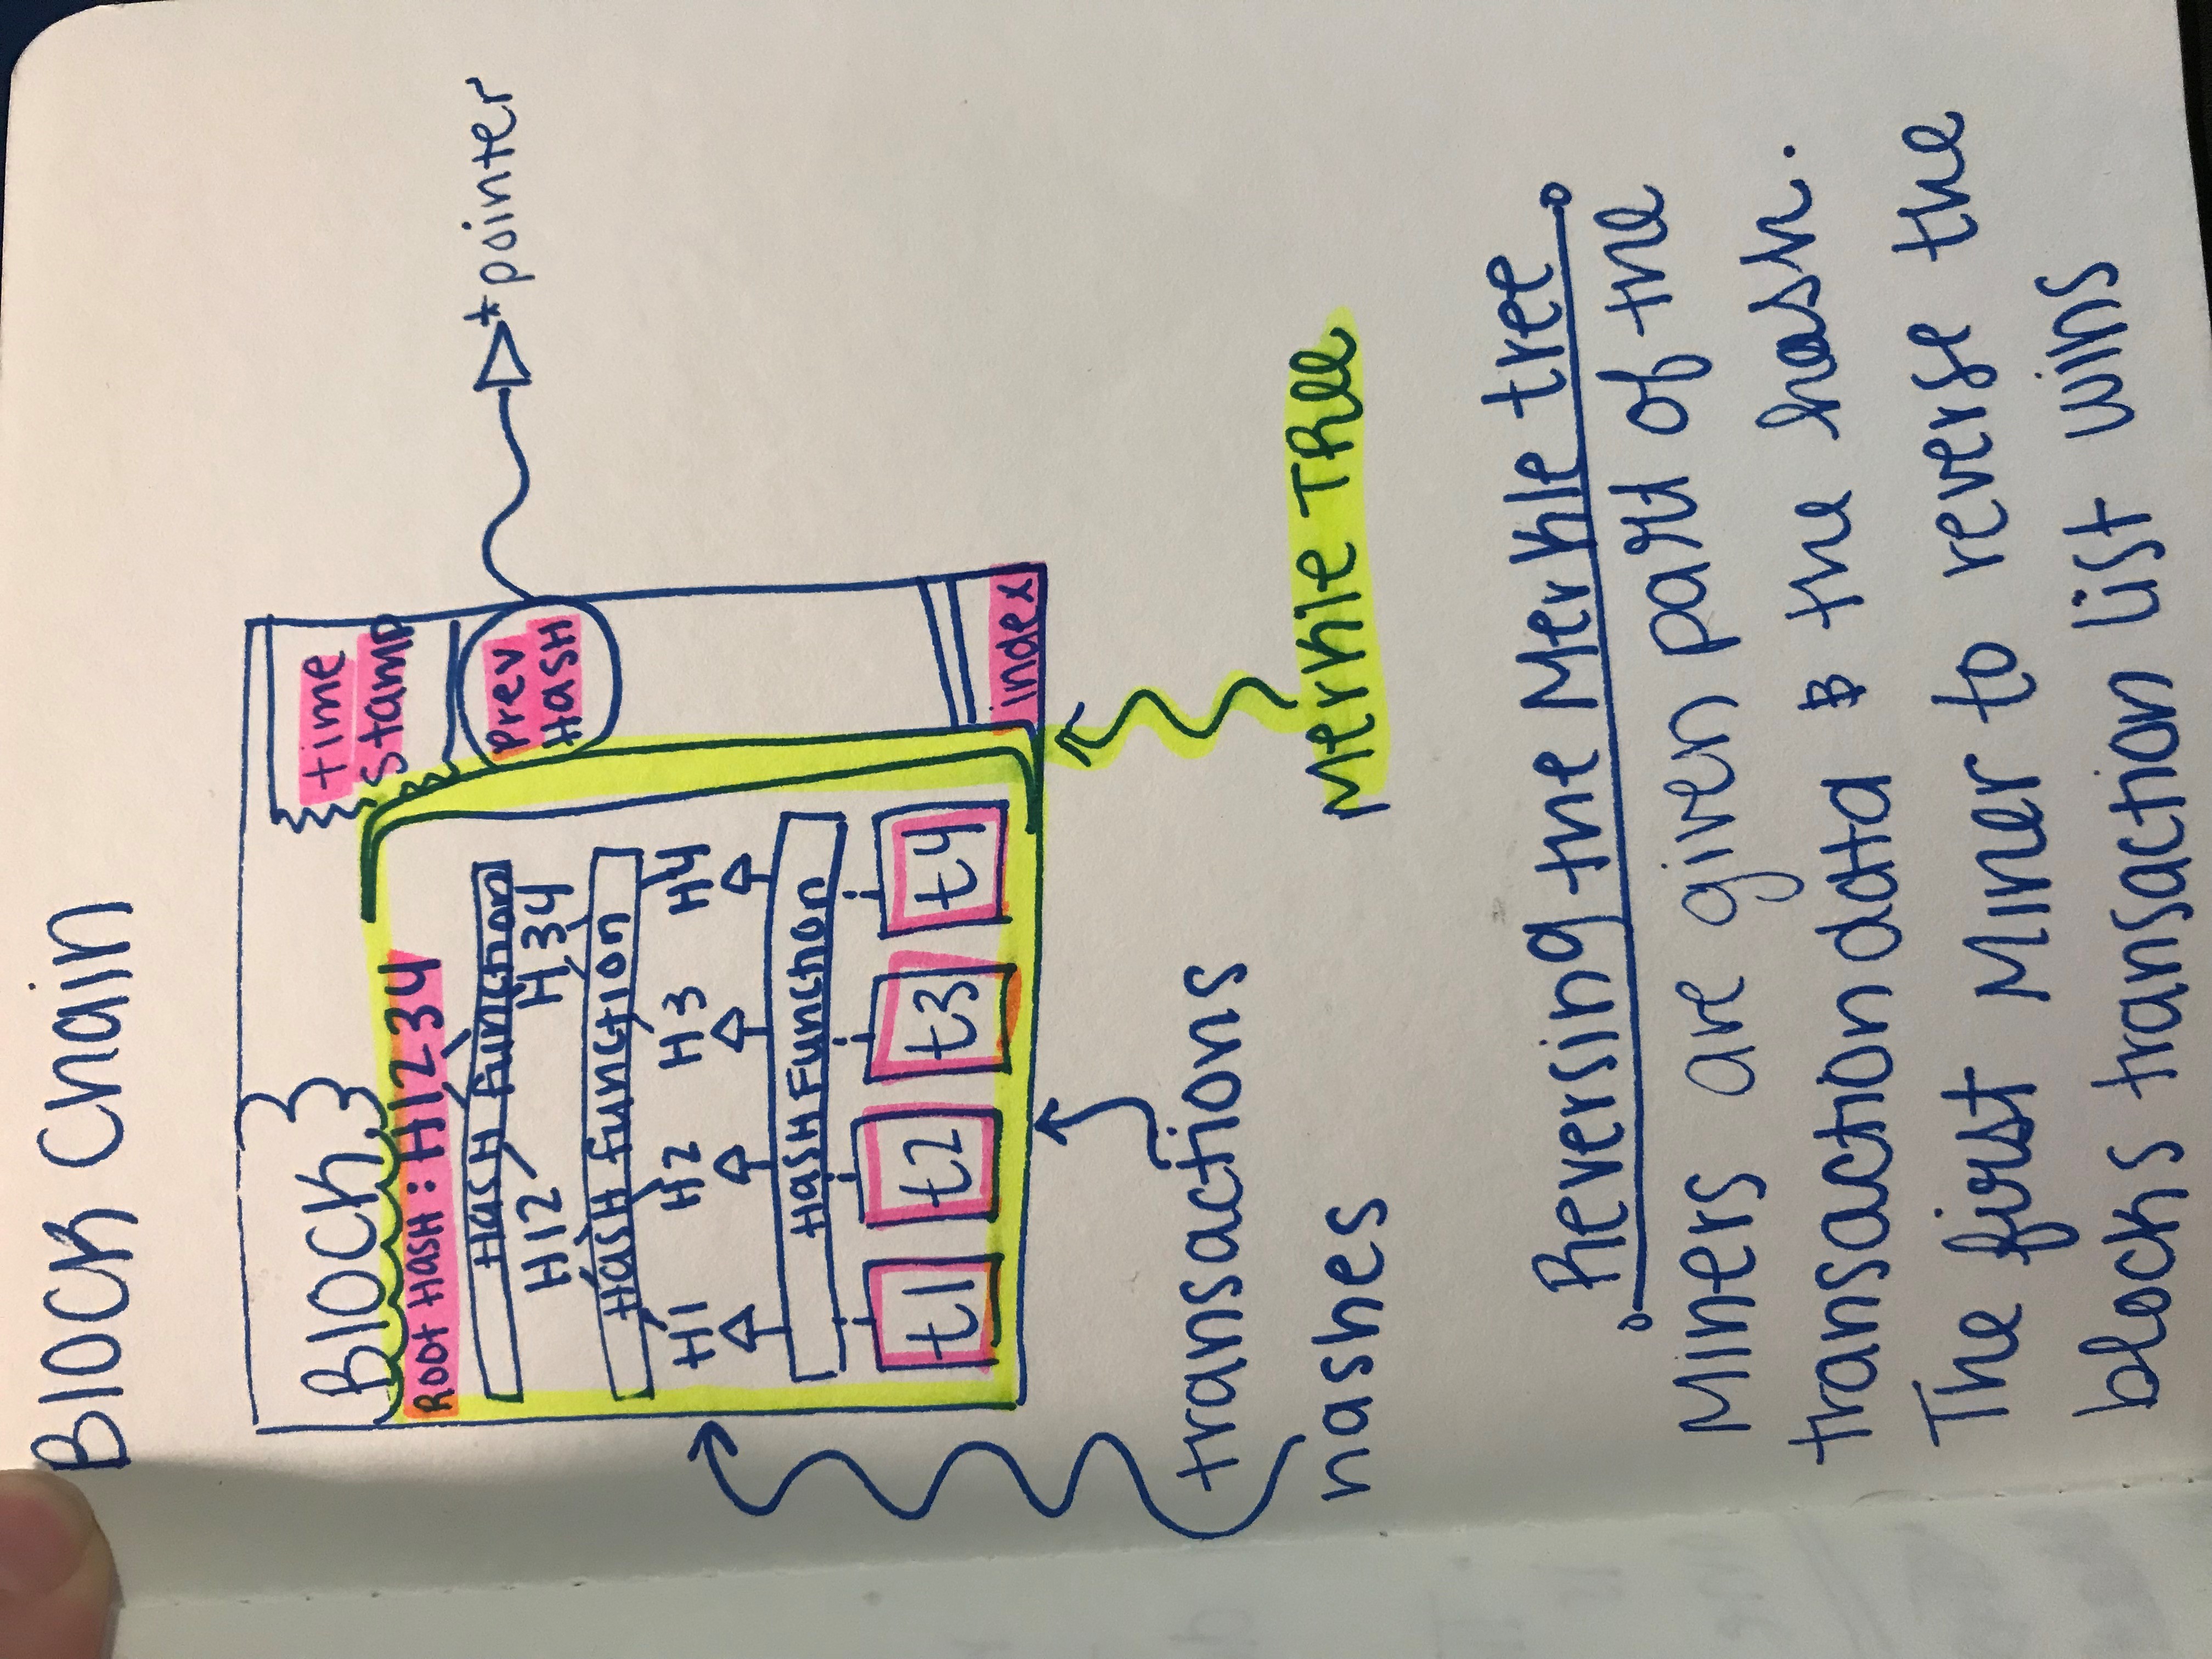 Block Chain
Block
time
stamp
Root Hash: H1234
Hash Function
Prev
Hash
*pointer
H12 H34
Hash function
H1 H2 H3 H4
Hash Function
t1 t2 t3 t4
index
transactions
hashes
Merkle Tree
Reversing the Merkle tree
Miners are given part of the
transaction data & the hash.
The first Miner to reverse the
blocks transaction list wins